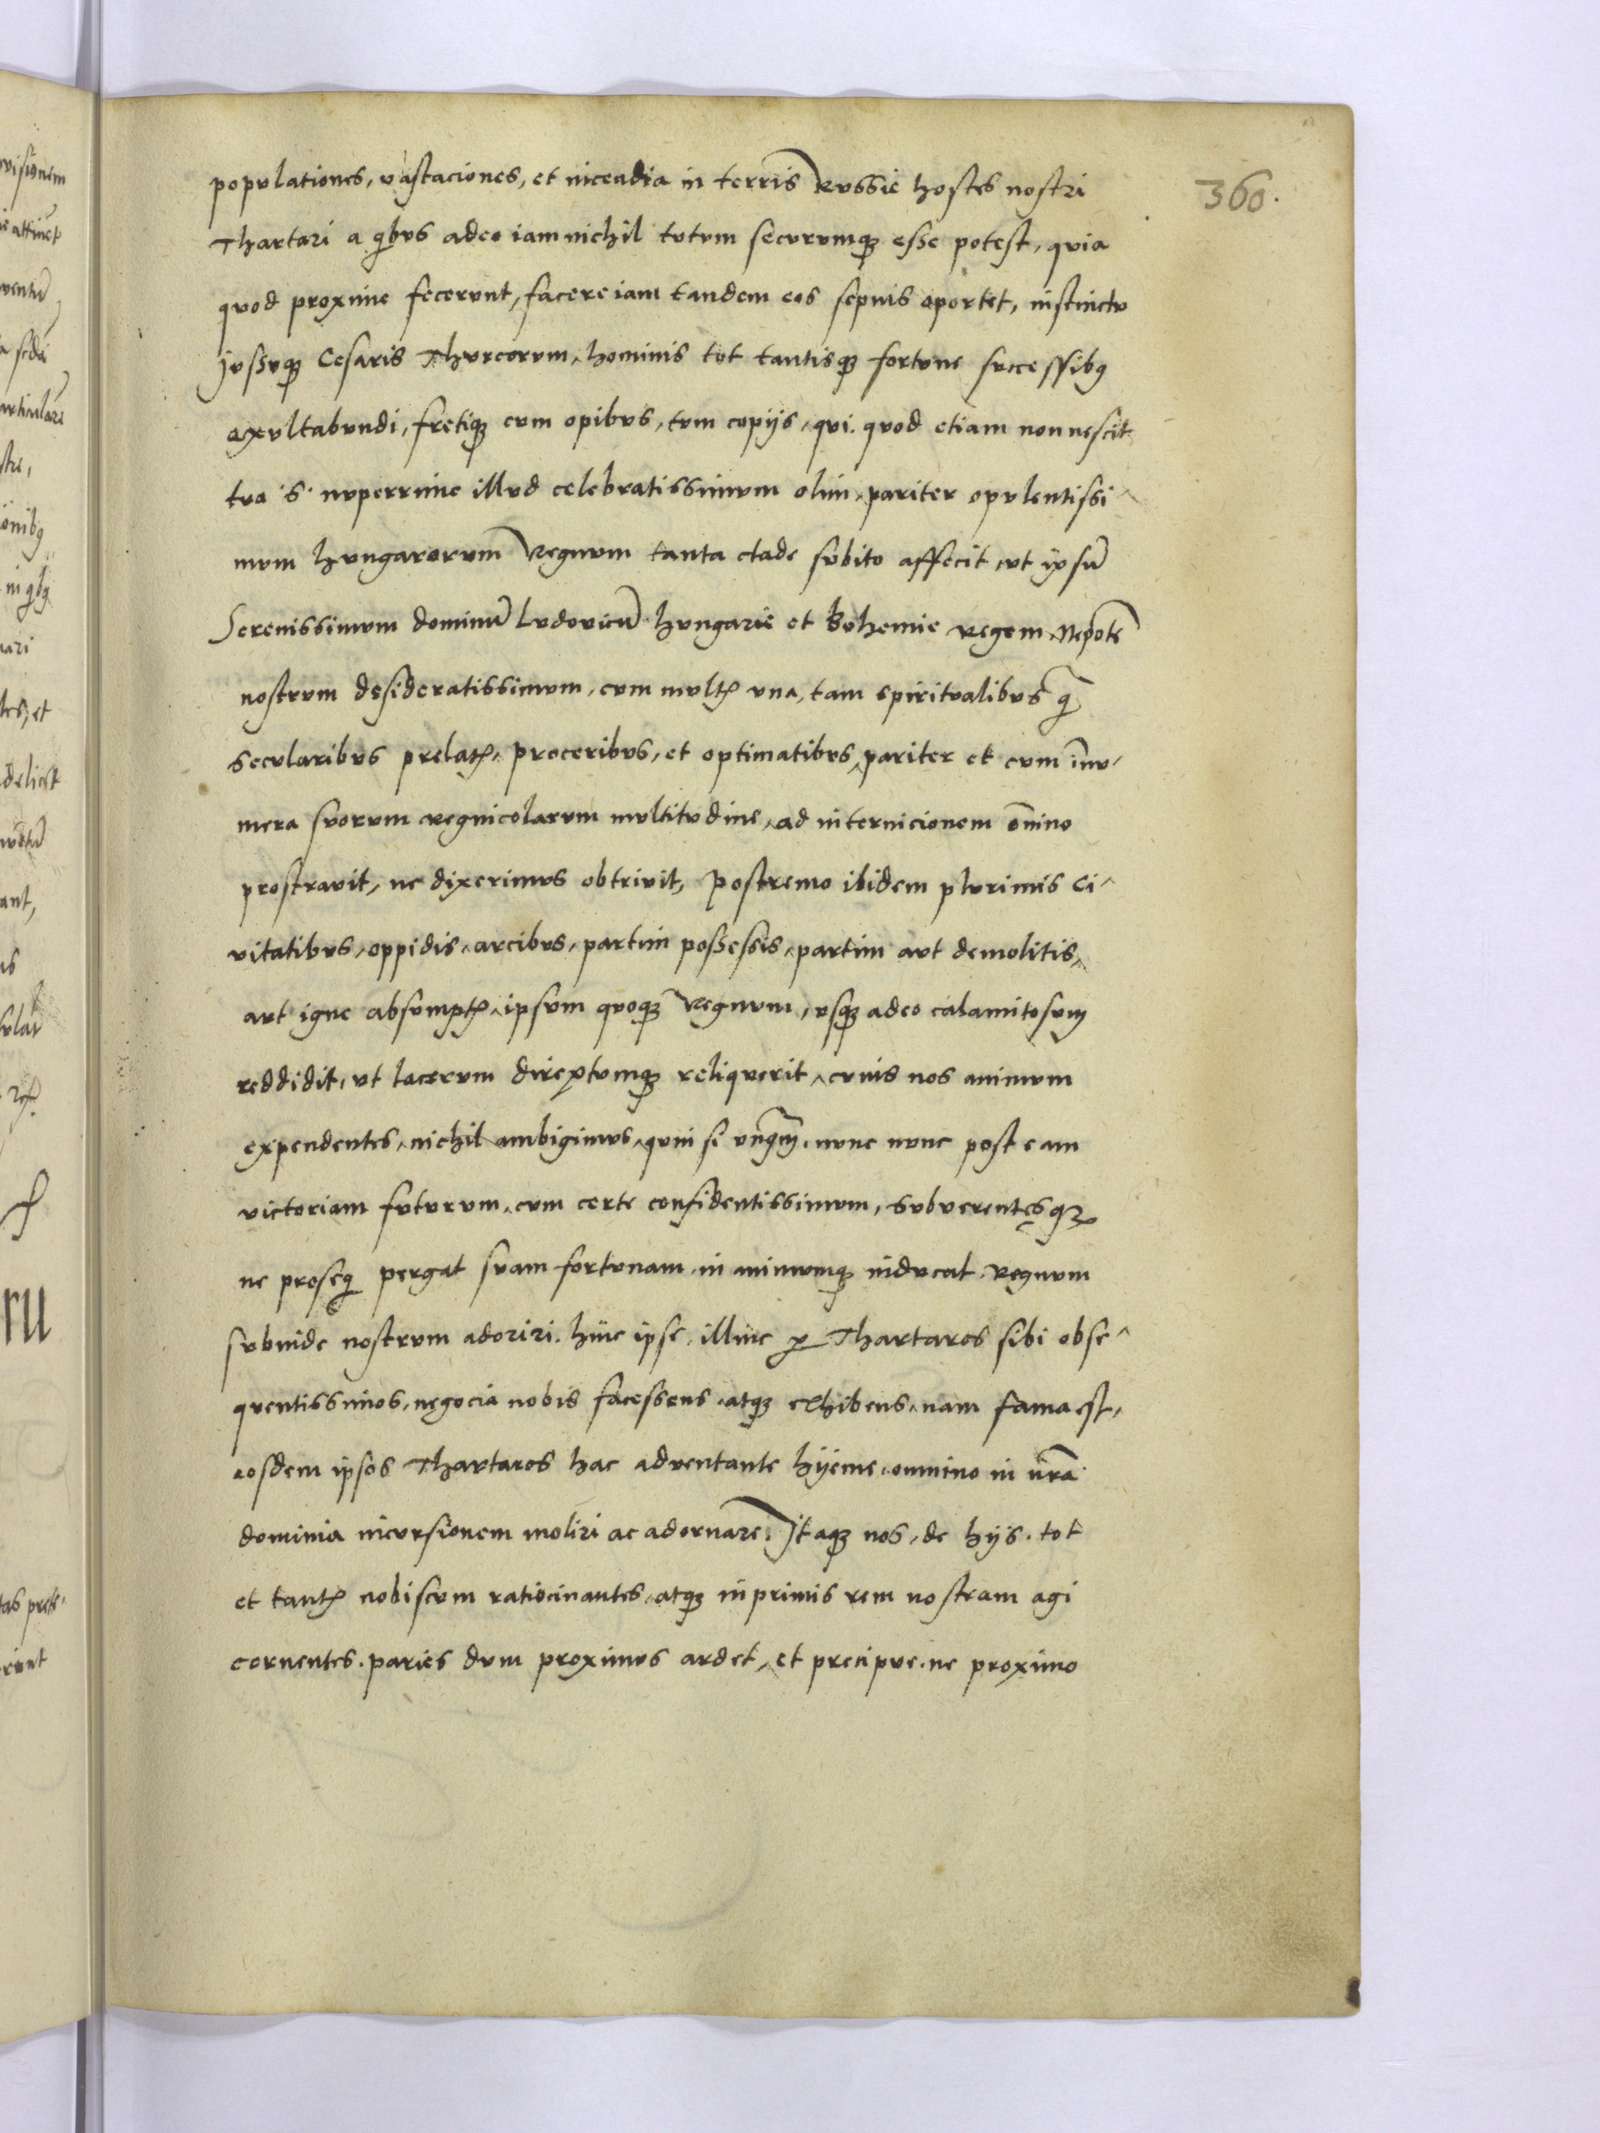 360.
populationes, vastaciones, et incendia in terris Russie hostes nostri
Thartari a qibus adeo iam nichil tutum securumq₃ esse potest, quia
quod proxime fecerunt, facere iam tandem eos sepius oportet, instinctu
Jussuq₃ Cesaris Thurcorum, hominis tot tantisq₃ fortune successibꝯ
exultabundi, fretiq₃ cum opibus, tum copijs, qui. quod etiam non nescit
tua .s. nuperrime illud celebratissimum olim, pariter opulentissi-
mum hungarorum Regnum tanta clade subito affecit, ut ipsū
Serenissimum dominū Ludouicū hungarie et Bohemie regem, Nepotē
nostrum desideratissimum, cum multꝭ una, tam spiritualibus q̄
secularibus prelatꝭ, proceribus, et optimatibus, pariter et cum innu-
mera suorum regnicolarum multitudine, ad internicionem ōnino
prostrauit, ne dixerimus obtriuit, Postremo ibidem plurimis Ci-
uitatibus, oppidis, arcibus, partim possessis, partim aut demolitis,
aut igne absumptꝭ, ipsum quoq₃ Regnum, usq₃ adeo calamitosum
reddidit, ut lacerum direptumq₃ reliquerit, cuius nos animum
expendentes, nichil ambigimus, quin si unq̄m, nunc nunc post eam
victoriam futurum, eum certe confidentissimum, subuerentesq₃
ne proseqi pergat suam fortunam, in animumq₃ inducat, regnum
subinde nostrum adoriri. hinc ipse, illinc ꝑ Thartaros sibi obse-
quentissimos, negocia nobis facessens, atq₃ exhibens, nam fama est,
eosdem ipsos Thartaros hac aduentante hyeme, omnino in nr̄a
dominia incursionem moliri ac adornare. Itaq₃ nos, de hijs. tot
et tantꝭ nobiscum ratiocinantes, atq₃ inprimis rem nostram agi
cernentes. paries dum proximus ardet, et precipue, ne proximo